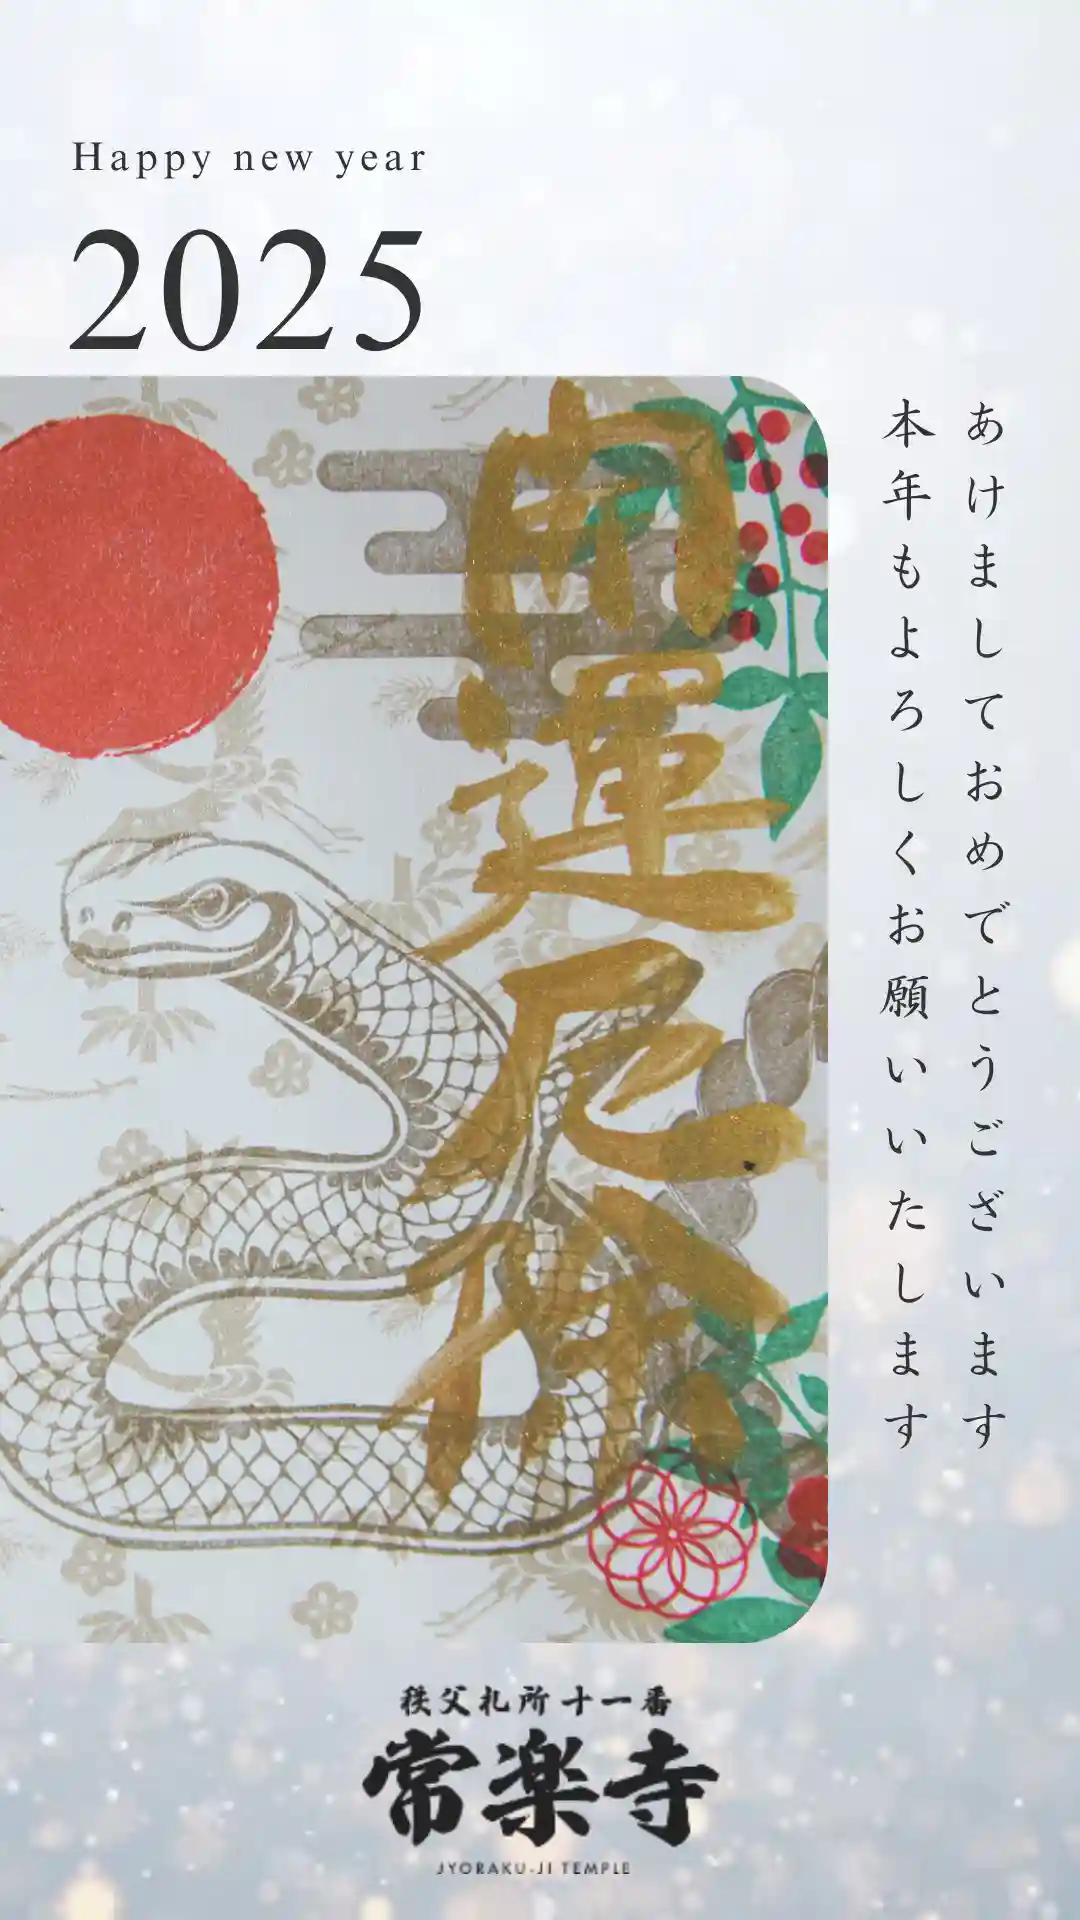 Happy new year
2025
あけましておめでとうございます
本年もよろしくお願いいたします
開運厄除
秩父札所十一番
常楽寺
JYORAKU-JI TEMPLE